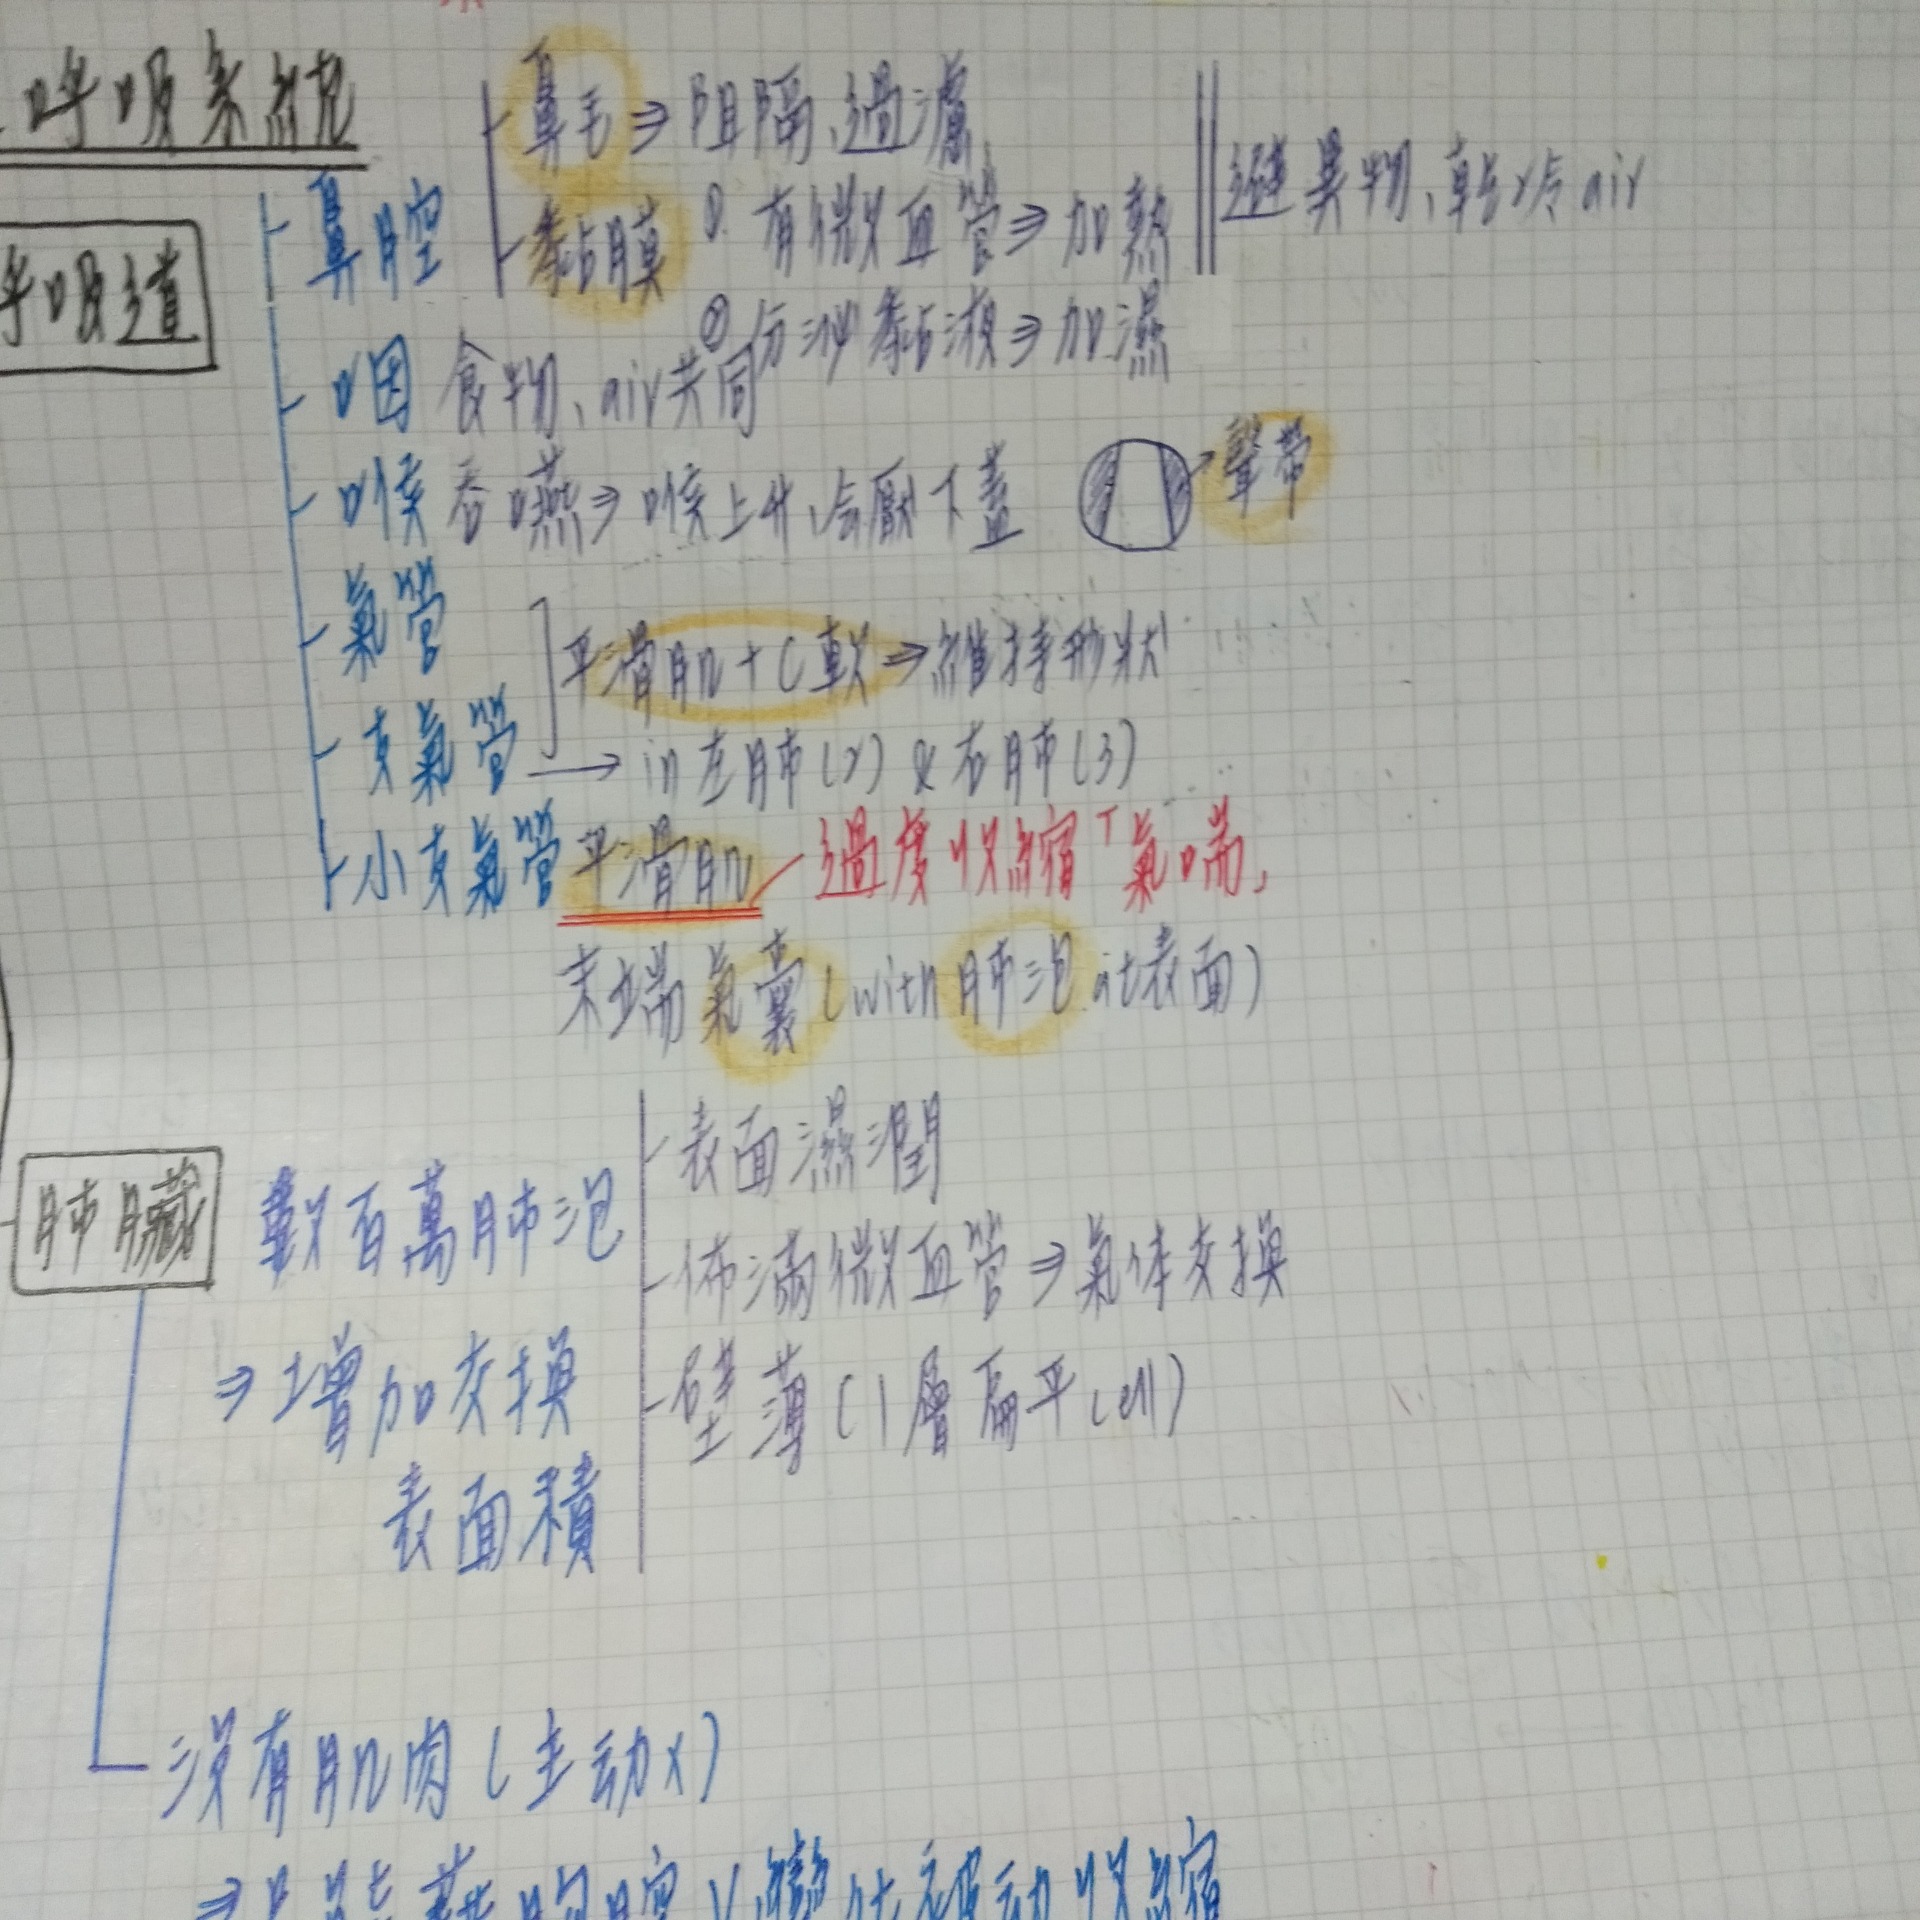 呼吸系統
呼吸道
鼻腔
鼻毛⇒阻隔、過濾
黏膜 ①. 有微血管⇒加熱
② 分泌黏液⇒加濕
避異物、乾冷air
咽 食物、air共同
喉 吞嚥⇒喉上升、會厭下蓋
聲帶
氣管
平滑肌+C軟⇒維持形狀
支氣管 → in左肺(2) & 右肺(3)
小支氣管 平滑肌 過度收縮「氣喘」
末端氣囊(with肺泡at表面)
肺臟
數百萬肺泡
⇒增加交換
表面積
表面濕潤
佈滿微血管⇒氣体交換
壁薄(1層扁平cell)
沒有肌肉(主动x)
⇒只能藉胸腔V變化被动收縮